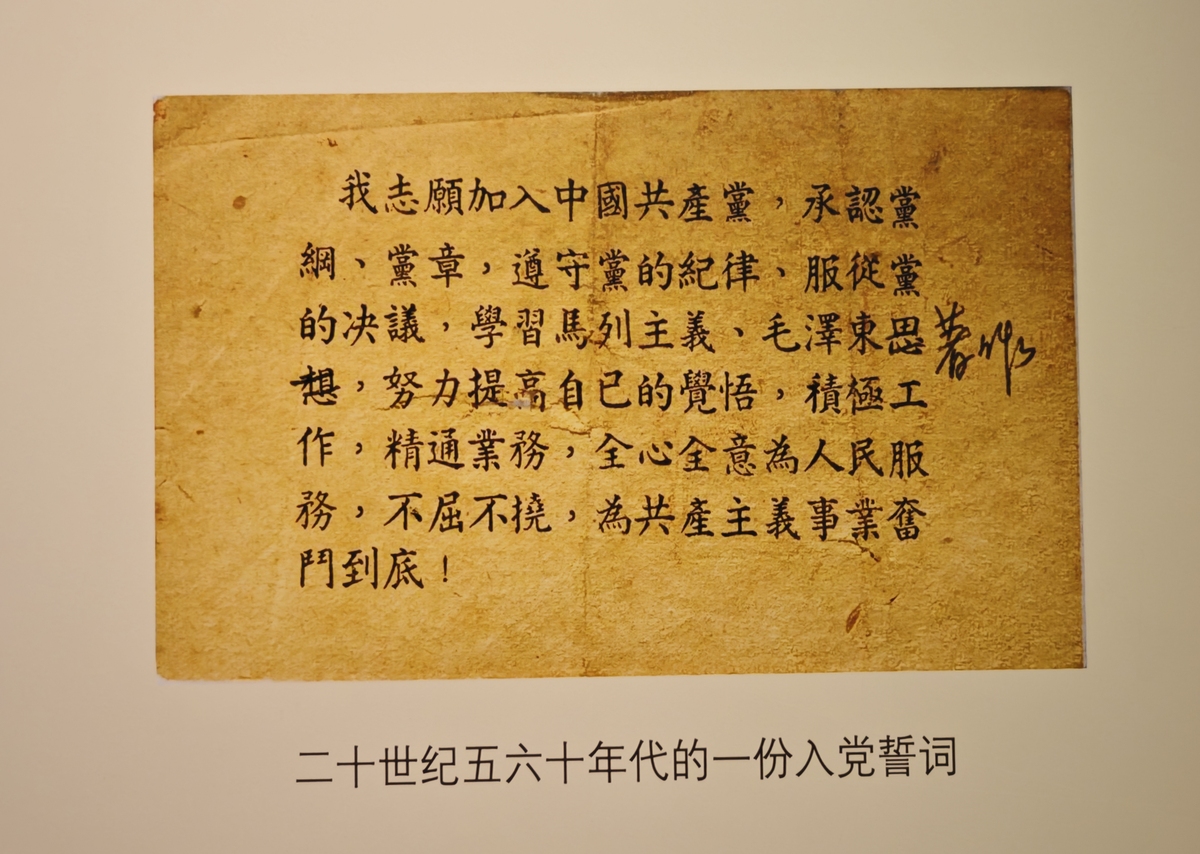 我志願加入中國共產黨，承認黨
綱、黨章，遵守黨的紀律、服從黨
的决議，學習馬列主義、毛澤東思
想，努力提高自已的覺悟，積極工
作，精通業務，全心全意為人民服
務，不屈不撓，為共產主義事業奮
鬥到底！
著作
二十世纪五六十年代的一份入党誓词